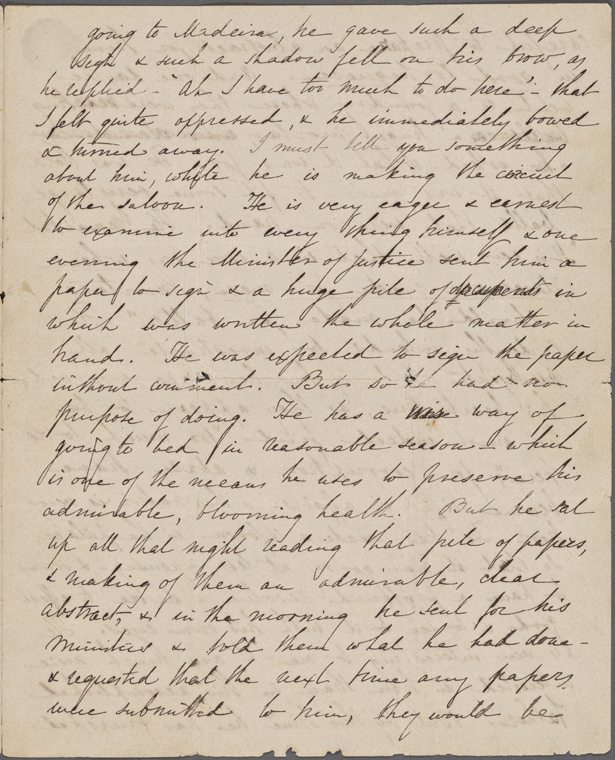 going to Madeira, he gave such a deep
sigh & such a shadow fell on his brow, as
he replied - "Ah I have too much to do here" - that
I felt quite oppressed, & he immediately bowed
& turned away. I must tell you something
about him, while he is making the circuit
of the saloon. He is very eager & earnest
to examine into every thing himself & one
evening the Minister of Justice sent him a
paper to sign & a huge pile of documents in
which was written the whole matter in
hand. He was expected to sign the paper
without comment. But so he had no
purpose of doing. He has a wise way of
going to bed in reasonable season - which
is one of the means he uses to preserve his
admirable, blooming health. But he sat
up all that night reading that pile of papers,
& making of them an admirable, clear
abstract, & in the morning he sent for his
Ministers & told them what he had done -
& requested that the next time any papers
were submitted to him, they would be